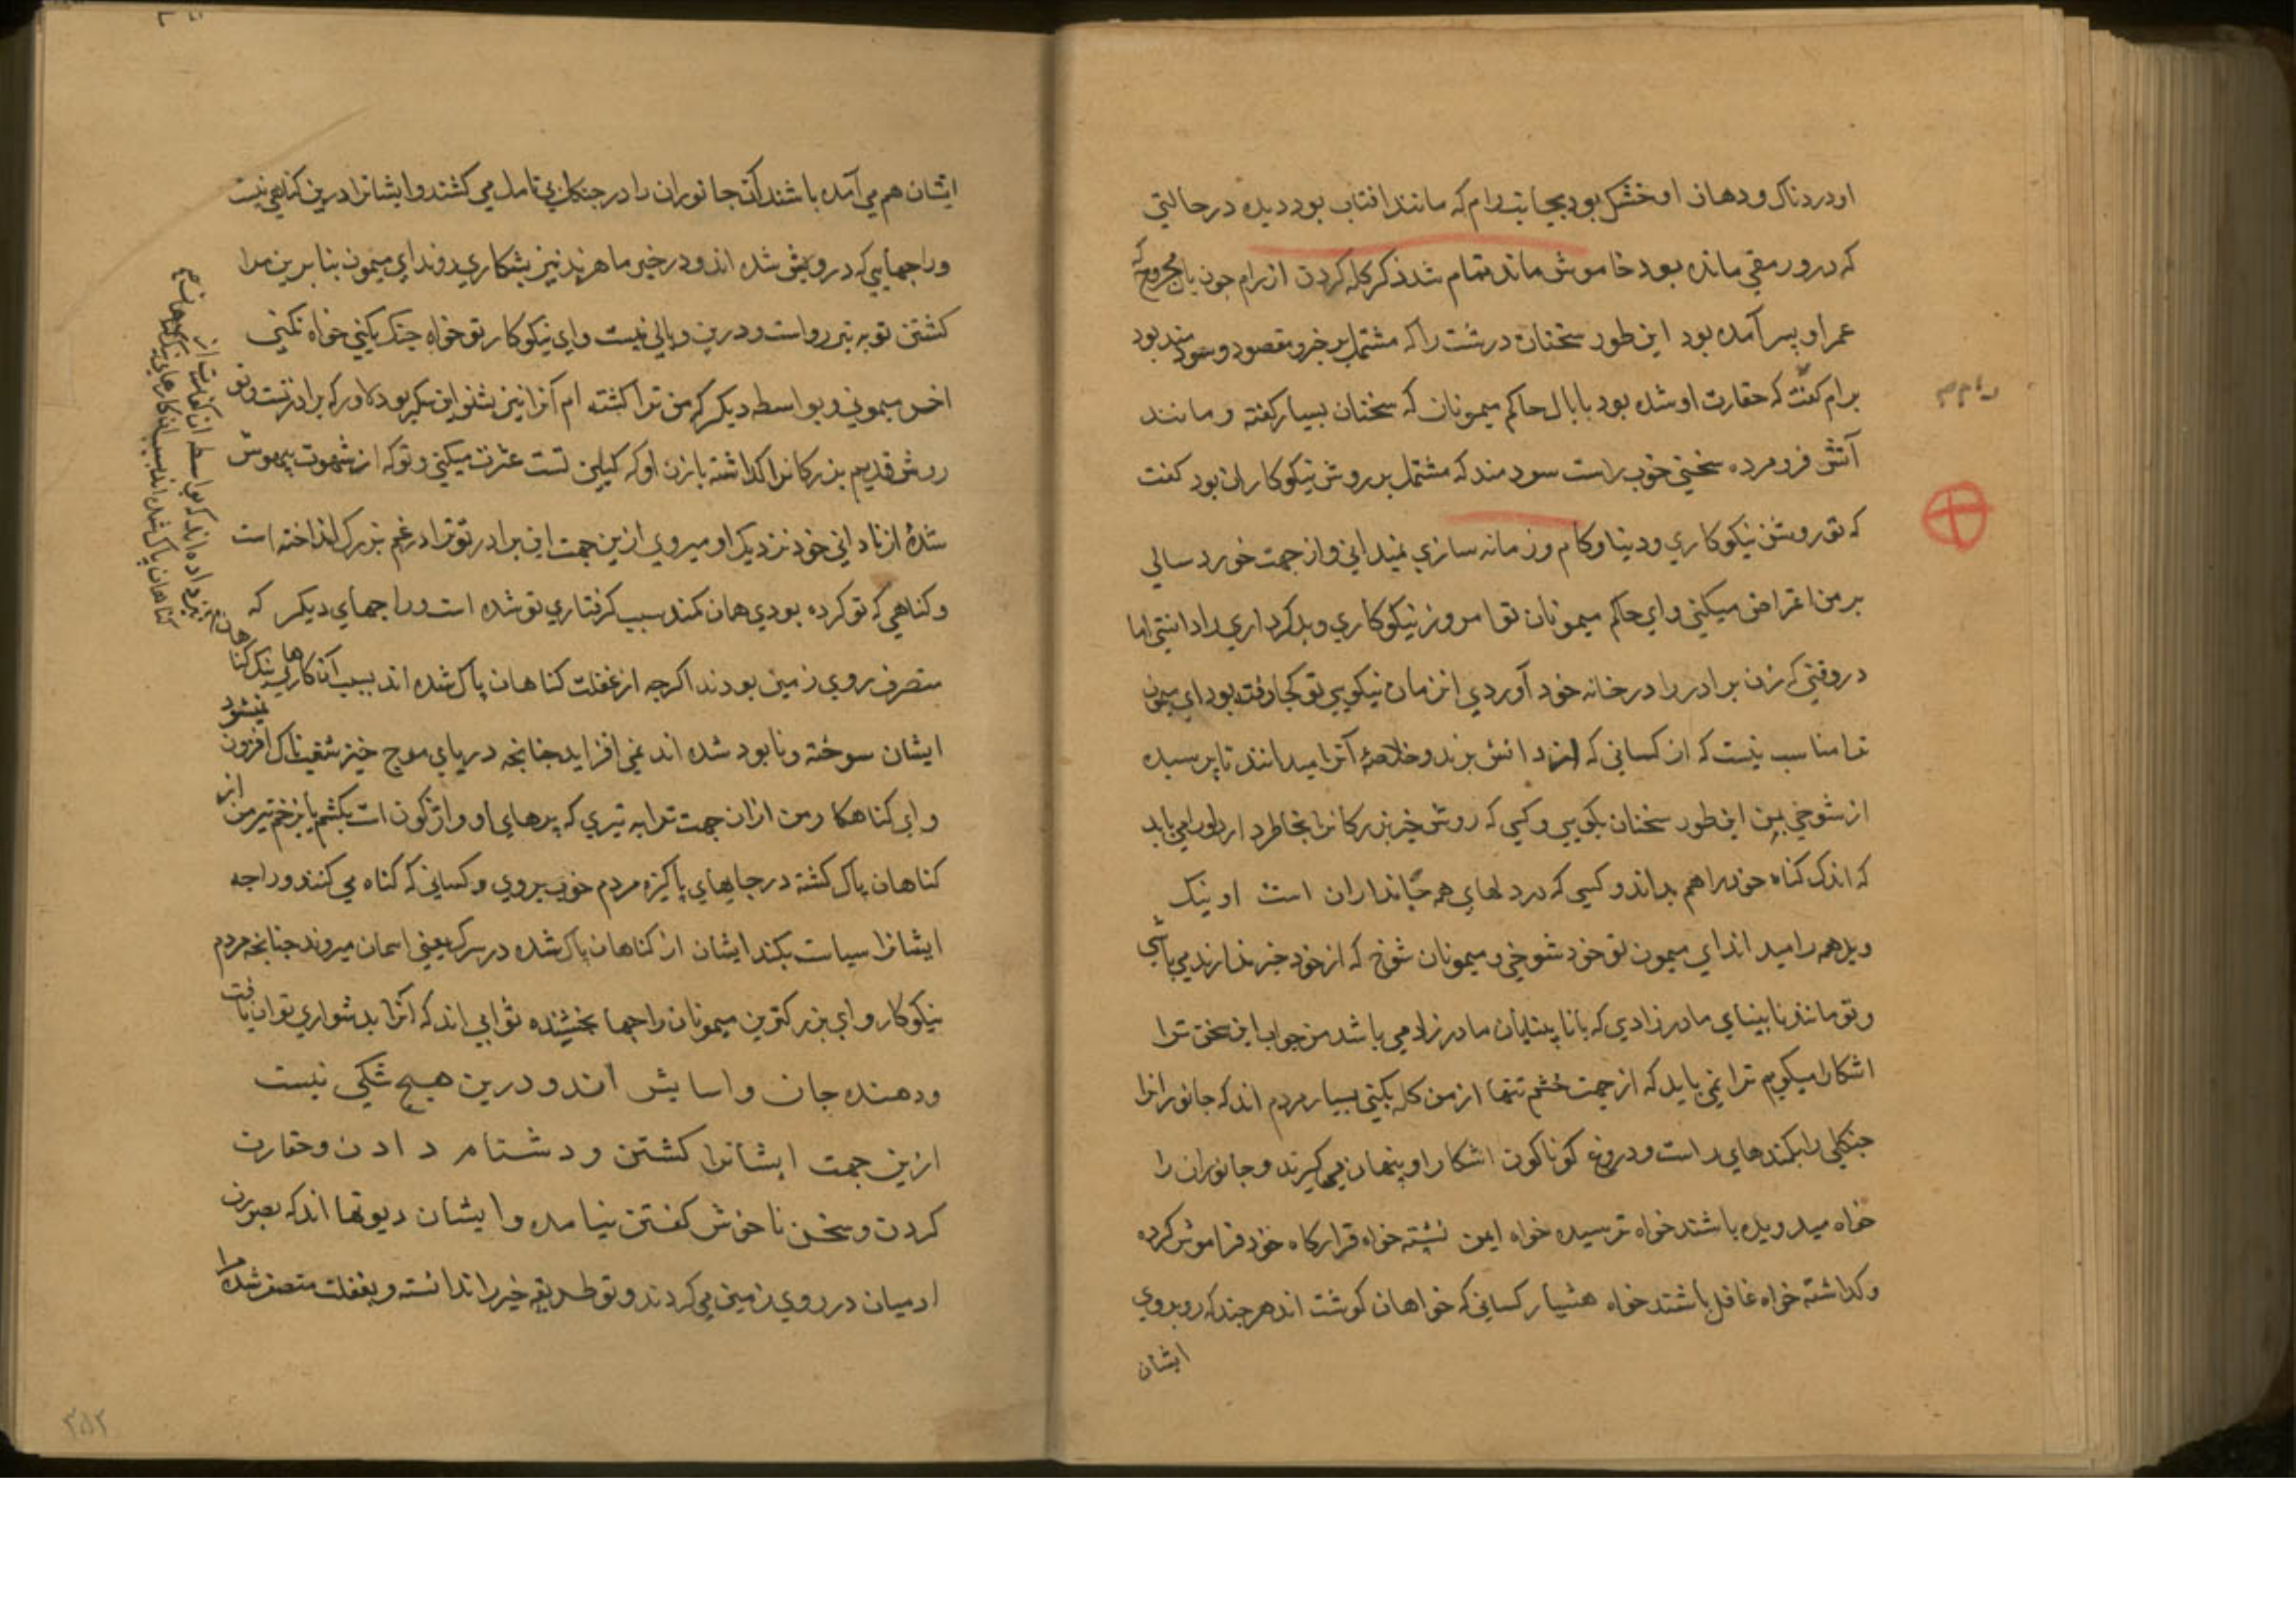 او دردناک و دهان او خشک بود بجانب رام که مانند افتاب بود دیده در حالتی
که درو رمقی ماند بود خاموش ماند تمام شد ذکر گله کردن از رام چون بال مجروح که
عمر او بسر آمده بود این طور سخنان درشت را که مشتمل بر خیر و مقصود و سودمند بود
برام گفت که حقارت او شده بود با بال حاکم میمونان که سخنان بسیار گفته و مانند
آتش فرو مرده سخنی خوب راست سودمند که مشتمل بر روش نیکوکاران بود گفت
که تو روش نیکوکاری و دنیا و کام و زمانه سازی نمیدانی و از جهت خورد سالی
بر من اعتراض میکنی و ای حاکم میمونان تو امروز نیکوکاری و بدکرداری را دانستی اما
در وقتی که زن برادر را در خانه خود آوردی انزمان نیکویی تو کجا رفته بود ای میمون
ترا مناسب نیست که از کسانی که از دانش برند و خلاصۀ آنرا میدانند نا پرسیده
از شوخی بمن این طور سخنان بگویی و کسی که روش خیر بزرگانرا بخاطر دارد او را می باید
که اندک گناه خود را هم بداند و کسی که در دلهای همه جانداران است او نیک
و بد همه را میداند ای میمون تو خود شوخی و میمونان شوخ که از خود خبر ندارند می باشی
و تو مانند نابینای مادرزادی که با نابینایان مادرزاد می باشد من جواب این سخن ترا
اشکارا میگویم ترا نمی باید که از جهت خشم تنها از من گله بکنی بسیار مردم اند که جانورانرا
جنگلی را بکمندهای راست و دروغ گوناگون اشکارا و پنهان می گیرند و جانوران را
خواه میدویده باشند خواه ترسیده خواه ایمن نشسته خواه قرارگاه خود فراموش کرده
و گذاشته خواه غافل باشند خواه هشیار کسانی که خواهان گوشت اند هر چند که روبروی
ایشان
ایشان هم می آمده باشند آن جانوران را در جنگل بی تامل می کشند و ایشانرا درین گناهی نیست
و راجهایی که درویش شده اند و در خیر ماهرند نیز بشکار می روند ای میمون بنا برین مرا
کشتن تو به تیر رواست و درین وبالی نیست و ای نیکوکار تو خواه جنگ بکنی خواه نکنی
اخر میمونی و بواسطه دیگر که من ترا کشته ام آنرا نیز بشنو این سگریو دلاور که برادر تست و تو
روش قدیم بزرگانرا گذاشته با زن او که کنیلن تست عشرت میکنی و تو که از شهوت بیهوش
شدۀ از نادانی خود نزدیک او میروی ازین جهت این برادر تو ترا در غم بزرگ انداخته است
و گناهی که تو کرده بودی همان کمند سبب گرفتاری تو شده است و راجهای دیگر که
متصرف روی زمین بودند اگر چه از غفلت گناهان پاک شده اند بسبب آن کارهای نیک گناهان
ایشان سوخته و نابود شده اند نمی افزاید چنانچه دریای موج خیز افزون نمیشود
و ای گناهکار من ازان جهت ترا به تیری که پرهای او واژگون است بکشم تا بزخم تیر من از
گناهان پاک گشته در جایهای پاکیزه مردم خوب بروی و کسانی که گناه می کنند و راجه
ایشانرا سیاست بکند ایشان از گناهان پاک شده در سرگ یعنی اسمان میروند چنانچه مردم
نیکوکار و ای بزرگترین میمونان راجها بخشنده ثوابی اند که آنرا بدشواری توان یافت
و دهنده جان و اسایش اند و درین هیچ شکی نیست
ازین جهت ایشانرا کشتن و دشنام دادن و حقارت
کردن و سخن ناخوش گفتن نیامده و ایشان دیوتها اند که بصورت
ادمیان در روی زمین می گردند و تو طریقه خیر را ندانسته و بغفلت متصف شده مرا
۳۸۲